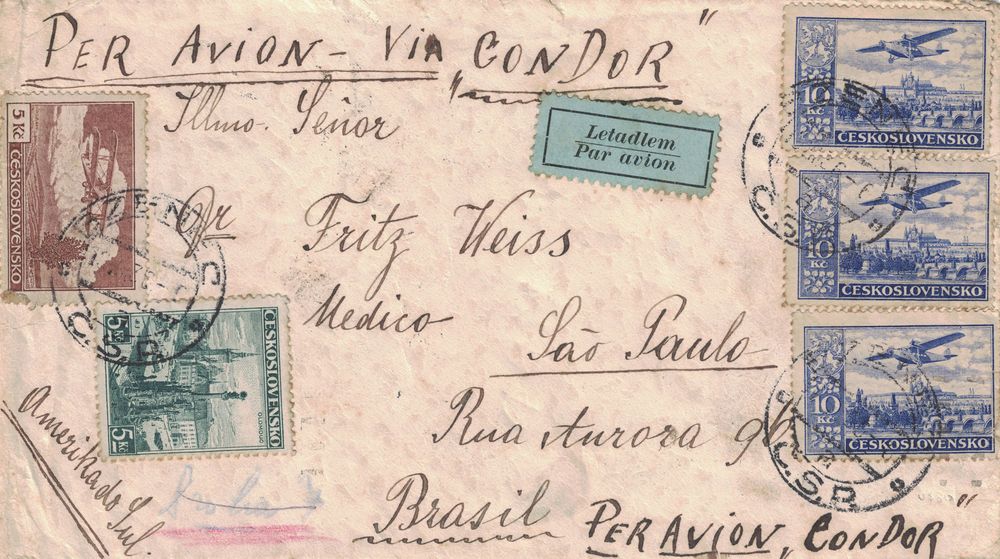 PER AVION - VIA "CONDOR"
Illmo. Señor
Dr Fritz Weiss
Medico
São Paulo
Rua Aurora 96
Brasil
PER AVION „CONDOR"
Amerika do Sul.
Letadlem
Par avion
5 Kč ČESKOSLOVENSKO
ČESKOSLOVENSKO
5 Kč
5 Kč
OLOMOUC
10 Kč
ČESKOSLOVENSKO
10 Kč
ČESKOSLOVENSKO
10 Kč
ČESKOSLOVENSKO
Č.S.R.
Č.S.R.
Č.S.R.